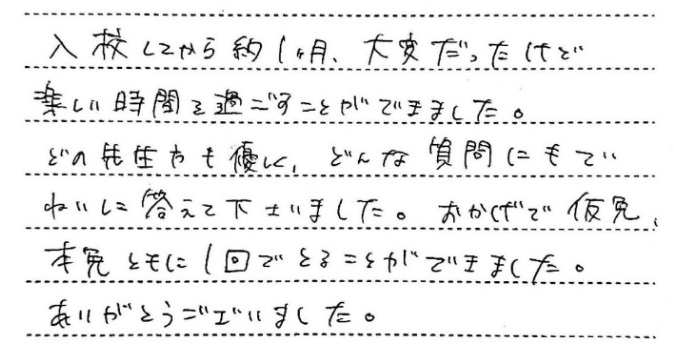 入校してから約1ヶ月、大変だったけど
楽しい時間を過ごすことができました。
どの先生方も優しく、どんな質問にもてい
ねいに答えて下さいました。おかげで仮免、
本免ともに1回でとることができました。
ありがとうございました。